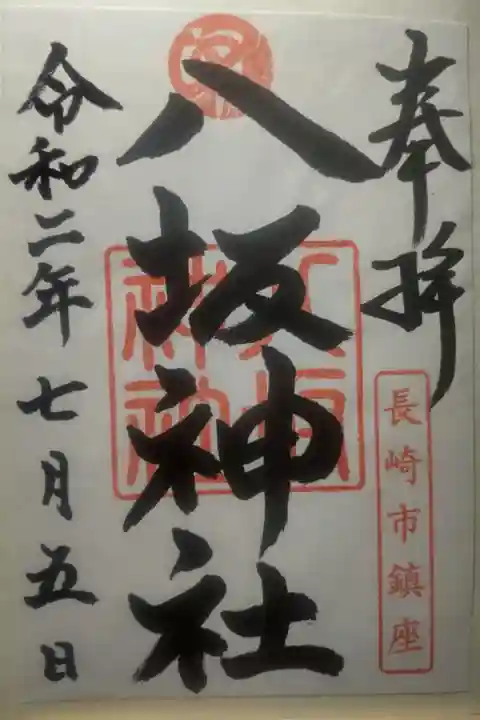 奉拝
長崎市鎮座
八坂神社
八坂神社
令和二年七月五日